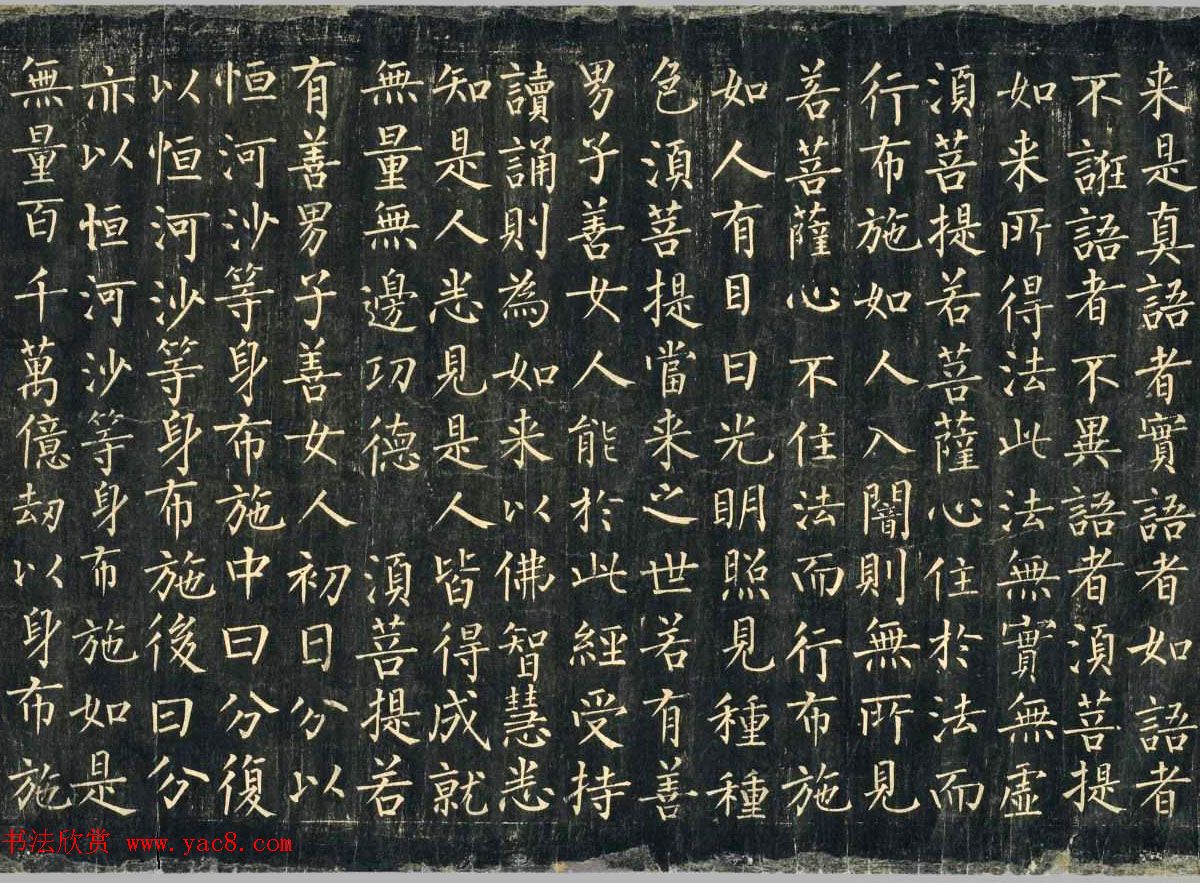 来是真語者實語者如語者
不誑語者不異語者湏菩提
如来所得法此法無實無虛
湏菩提若菩薩心住於法而
行布施如人入闇則無所見
若菩薩心不住法而行布施
如人有目日光明照見種種
色湏菩提當来之世若有善
男子善女人能於此經受持
讀誦則為如来以佛智慧悉
知是人悉見是人皆得成就
無量無邊功德湏菩提若
有善男子善女人初日分以
恒河沙等身布施中日分復
以恒河沙等身布施後日分
亦以恒河沙等身布施如是
無量百千萬億劫以身布施
书法欣赏 www.yac8.com